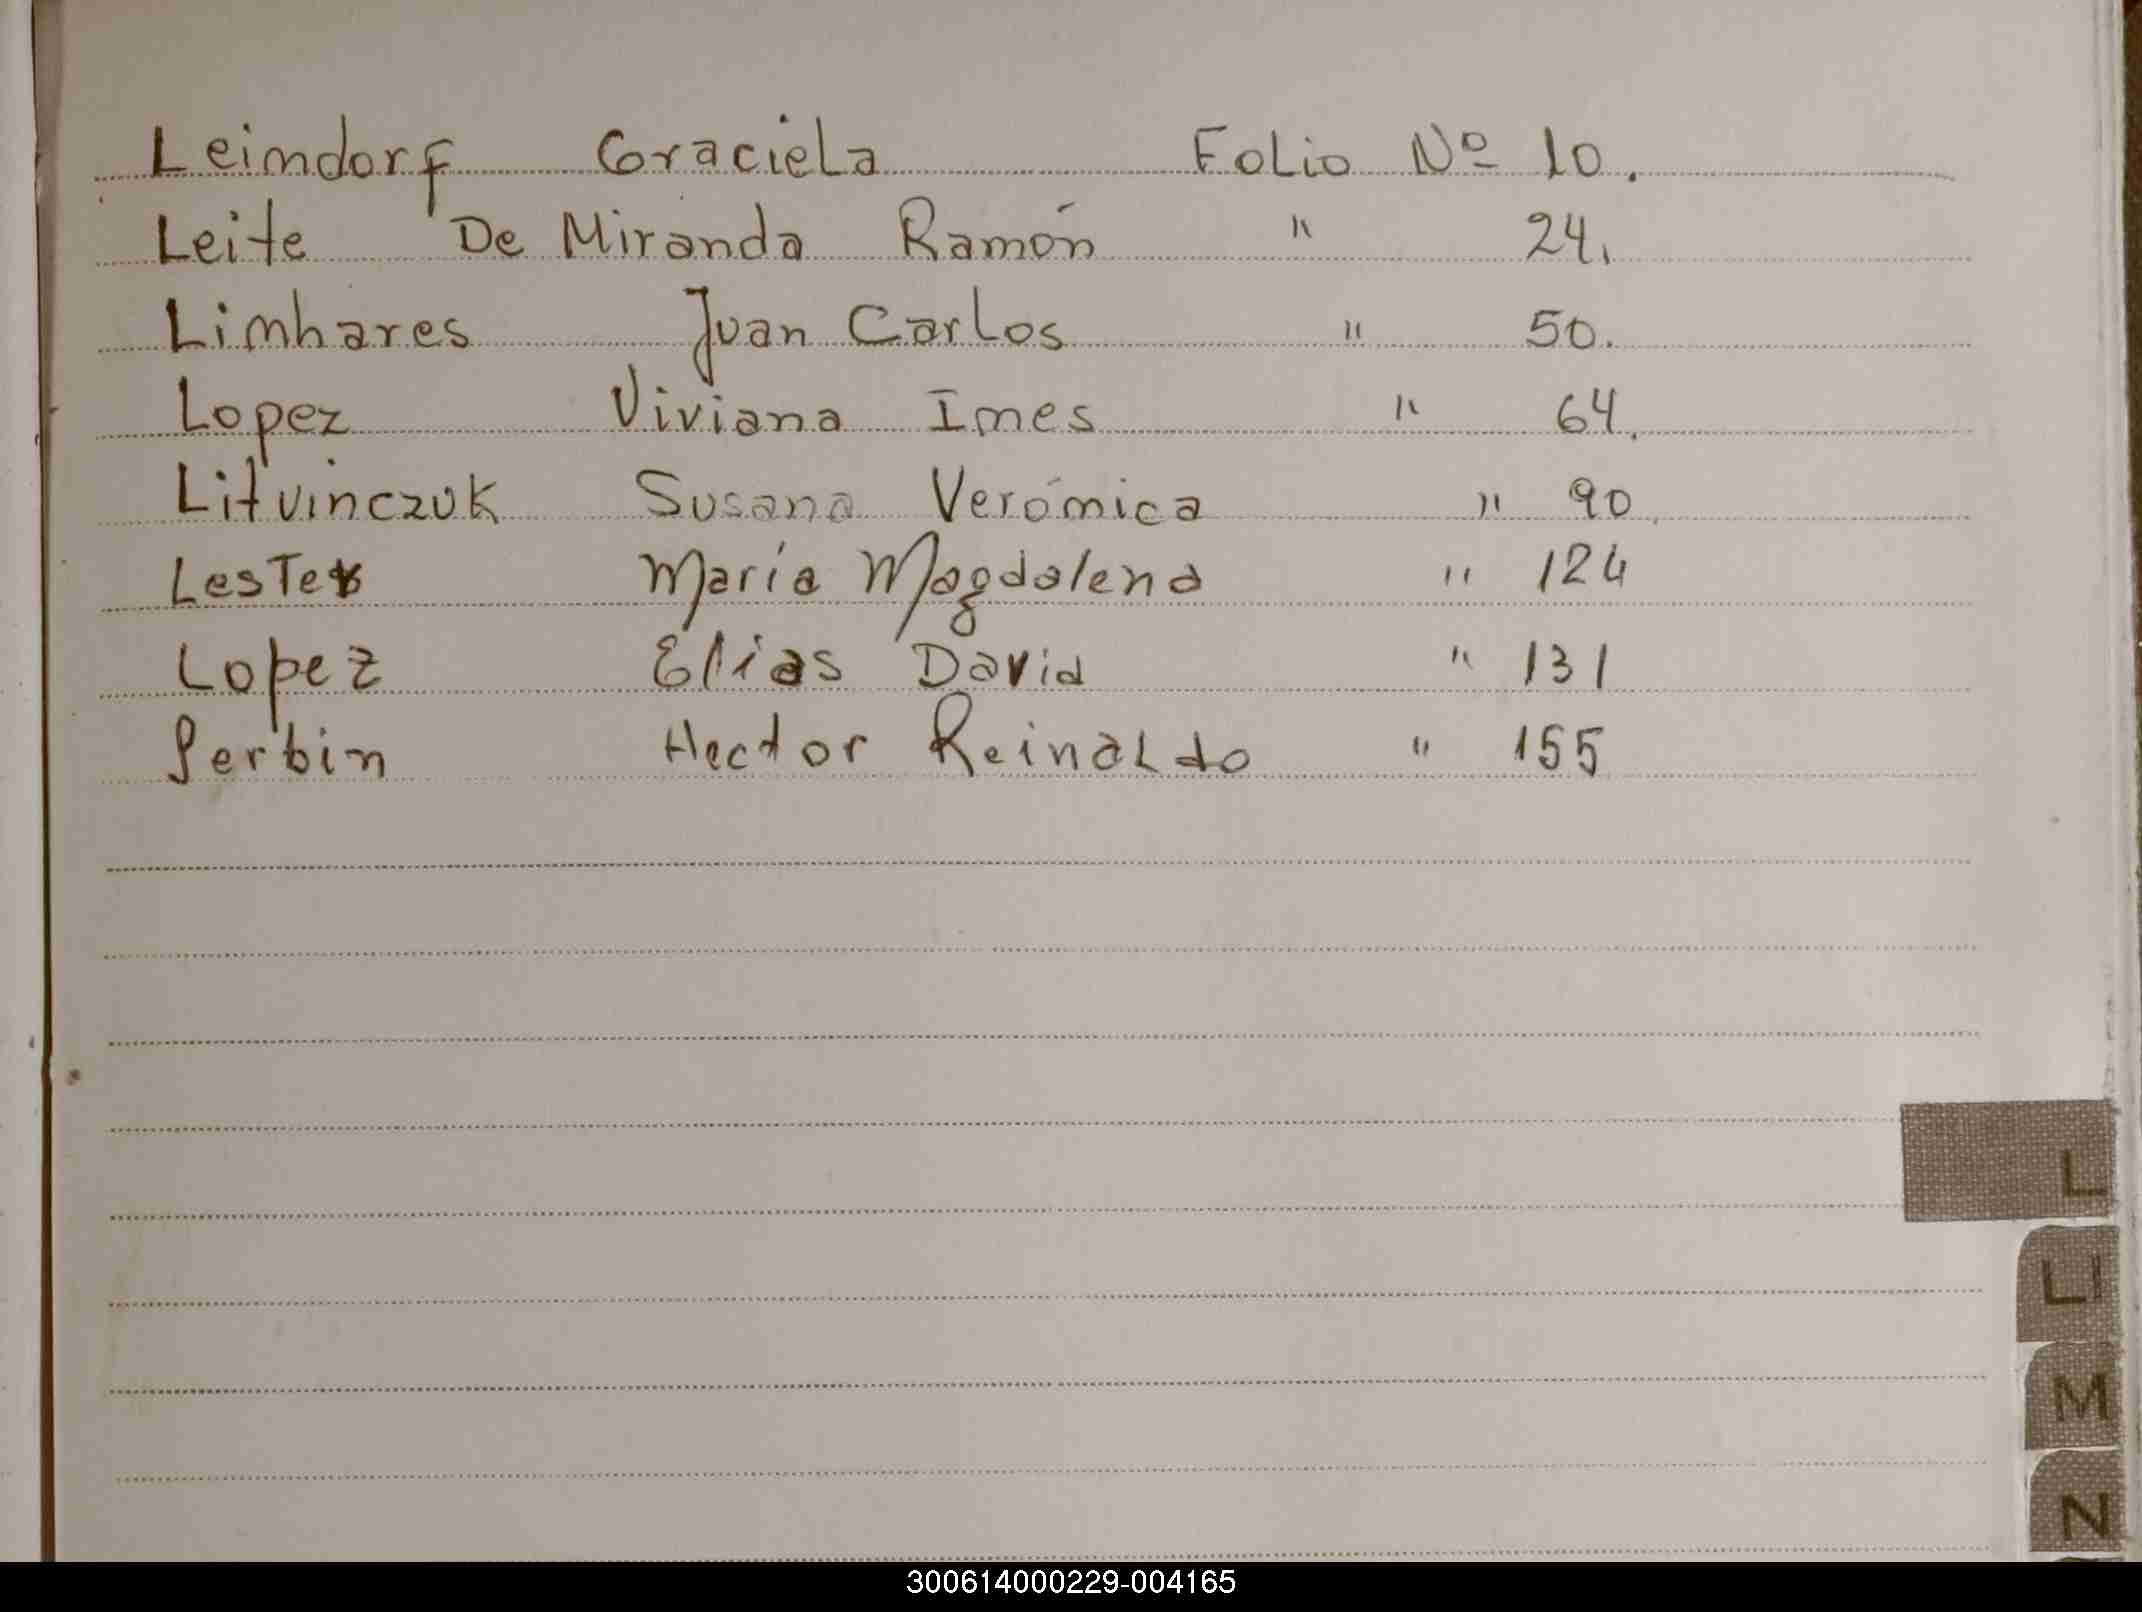 Leindorf Graciela Folio Nº 10.
Leite De Miranda Ramón " 24.
Linhares Juan Carlos " 50.
Lopez Viviana Ines " 64.
Litvinczuk Susana Verónica " 90.
Lester María Magdalena " 124
Lopez Elias David " 131
Serbin Hector Reinaldo " 155
L
LL
M
N
300614000229-004165